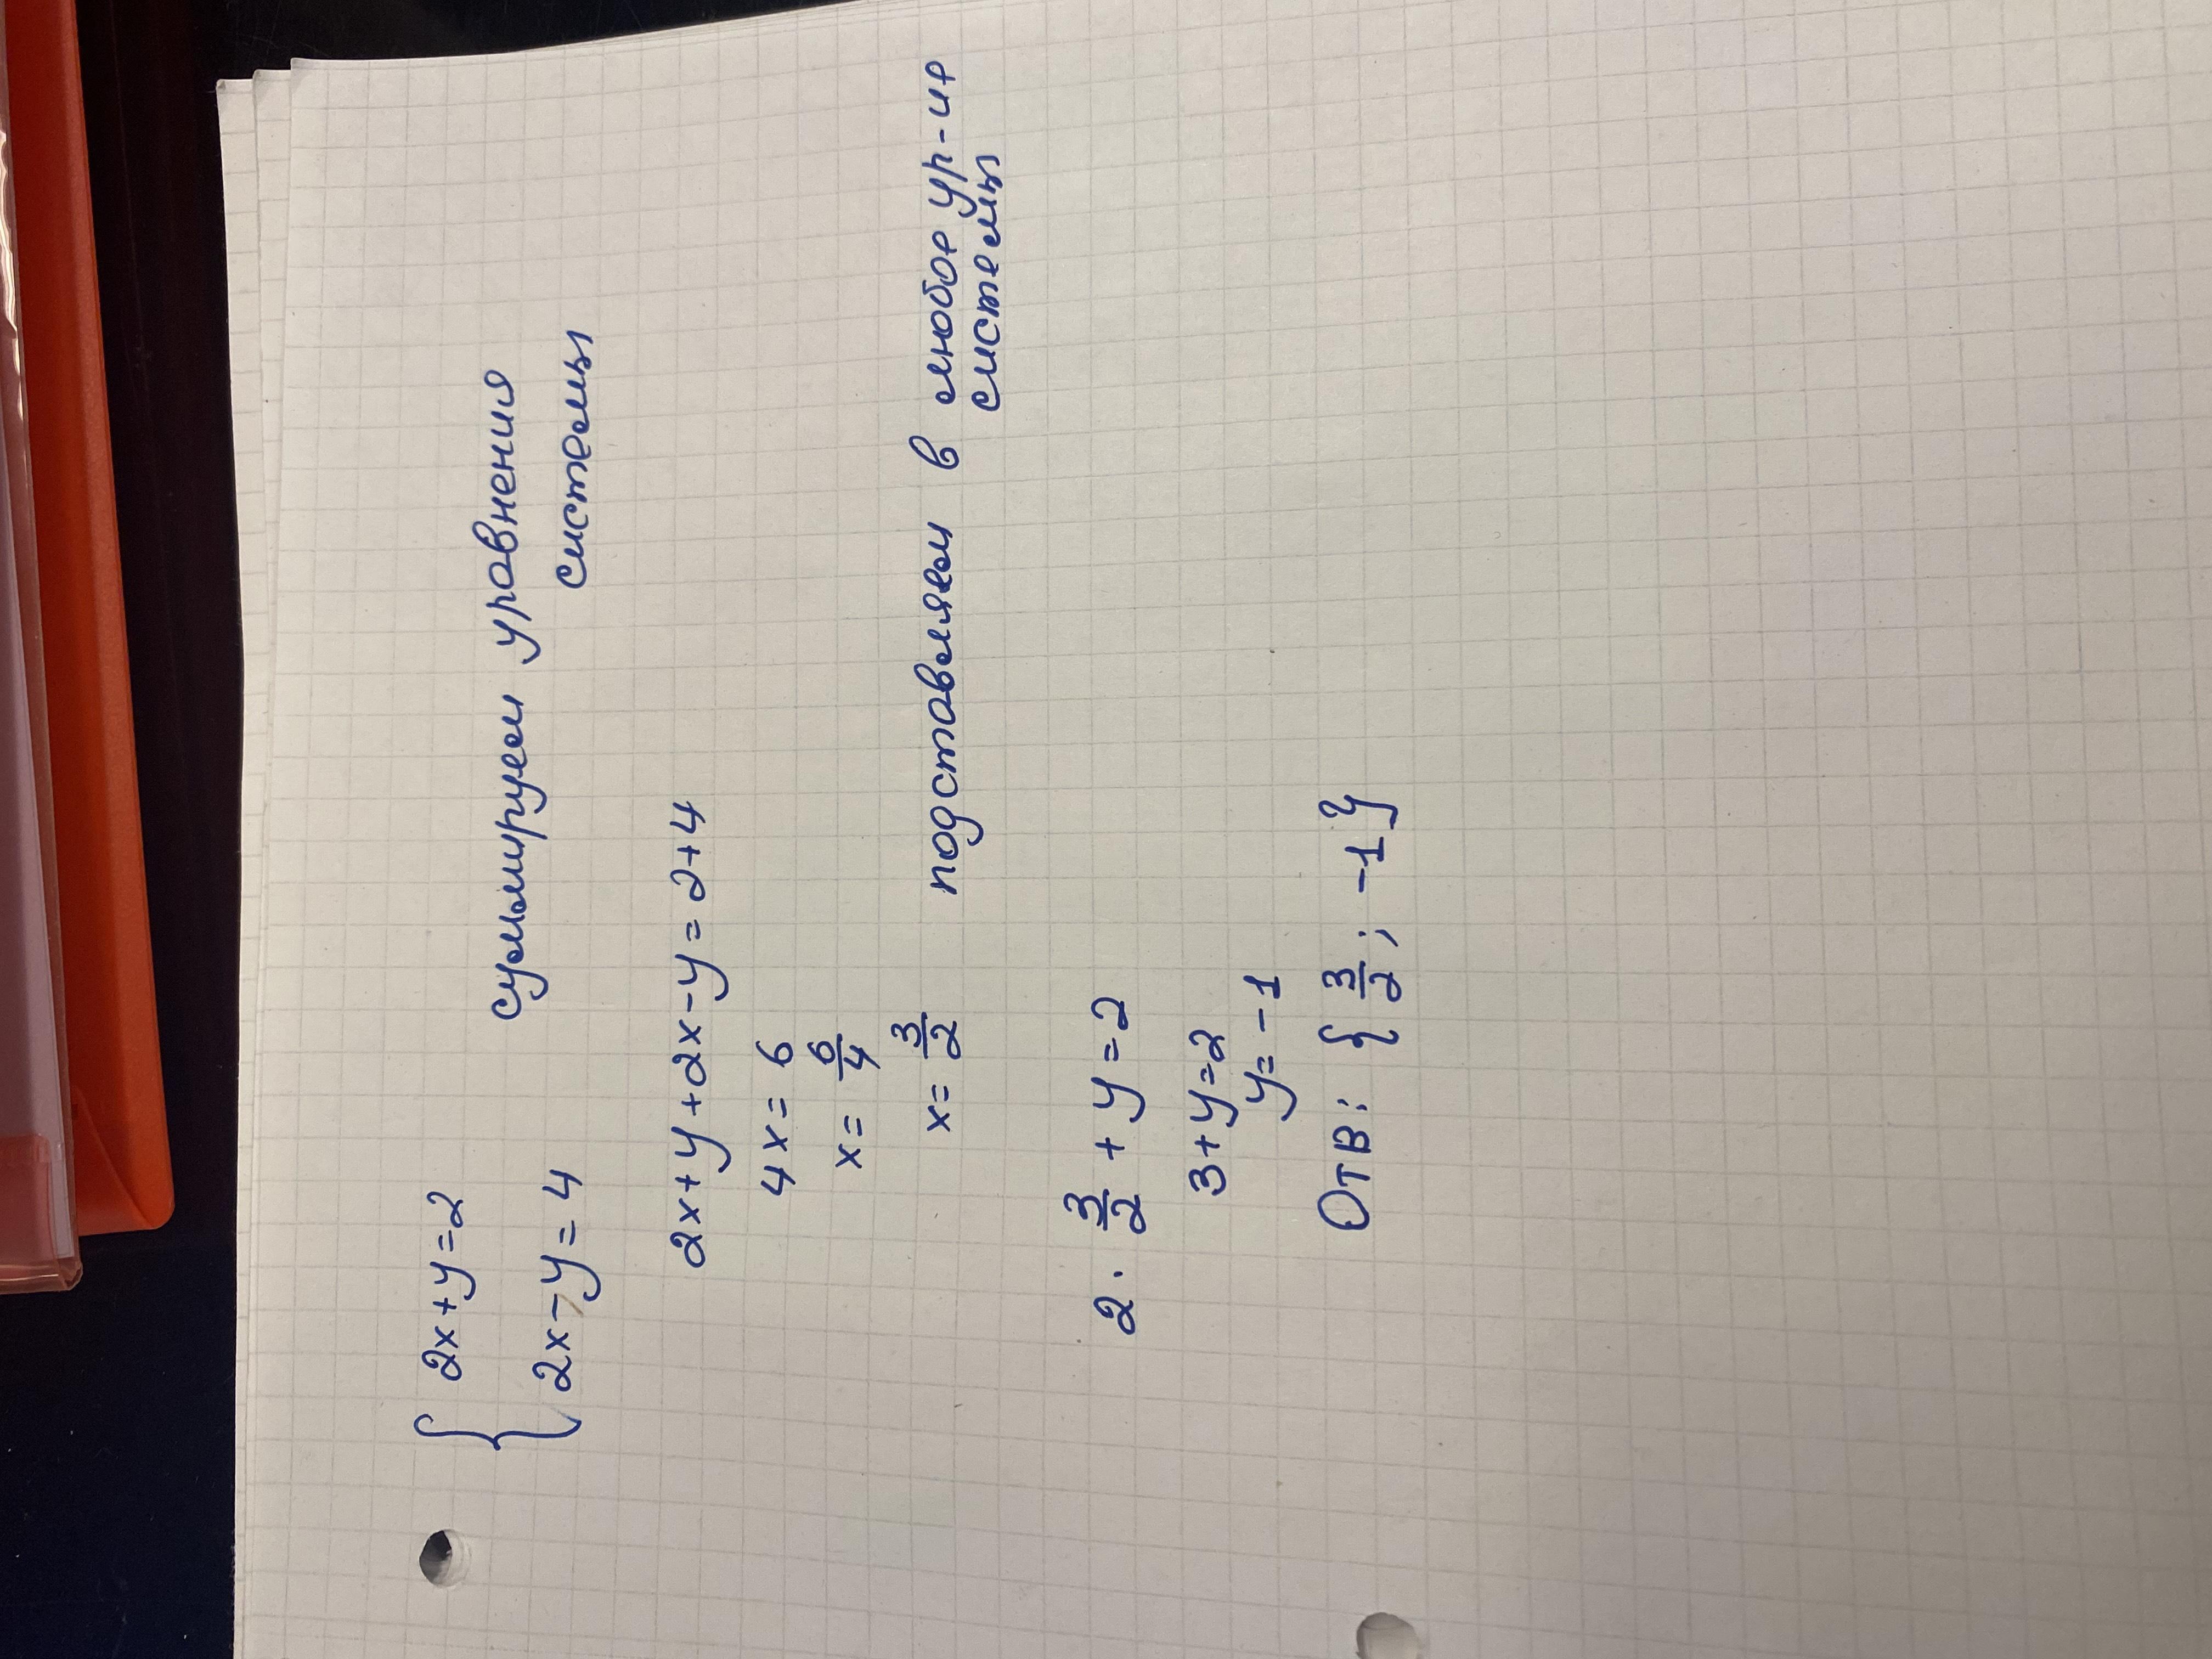 { 2x+y=2
суммируем уравнения
2x-y=4
системы
2x+y+2x-y=2+4
4x=6
x=6/4
x=3/2 подставляем в любое ур-ие
системы
2·3/2+y=2
3+y=2
y=-1
Отв: {3/2; -1}